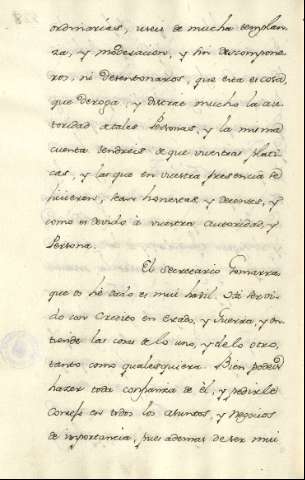 ordinarios, useis de mucha templan-
za, y moderacion, y sin descompone-
ros, ni desentonaros, que esta es cosa
que deroga, y distrae mucho la au-
toridad a tales Personas, y la misma
cuenta tendreis de que vuestras plati-
cas, y las que en vuestra presencia se
hicieren, sean honestas y decentes, y
como es devido à vuestra autoridad, y
Persona.
El Secretario Gomarra
que os hé dado es mui habil. Há servi-
do con Credito en Estado, y Guerra, y en-
tiende las cosas de lo uno, y de lo otro,
tanto como qualesquiera. Bien podeis
hazer toda confianza de él, y pedirle
Consejo en todos los asuntos, y Negocios
de importancia, pues ademas de ser mui